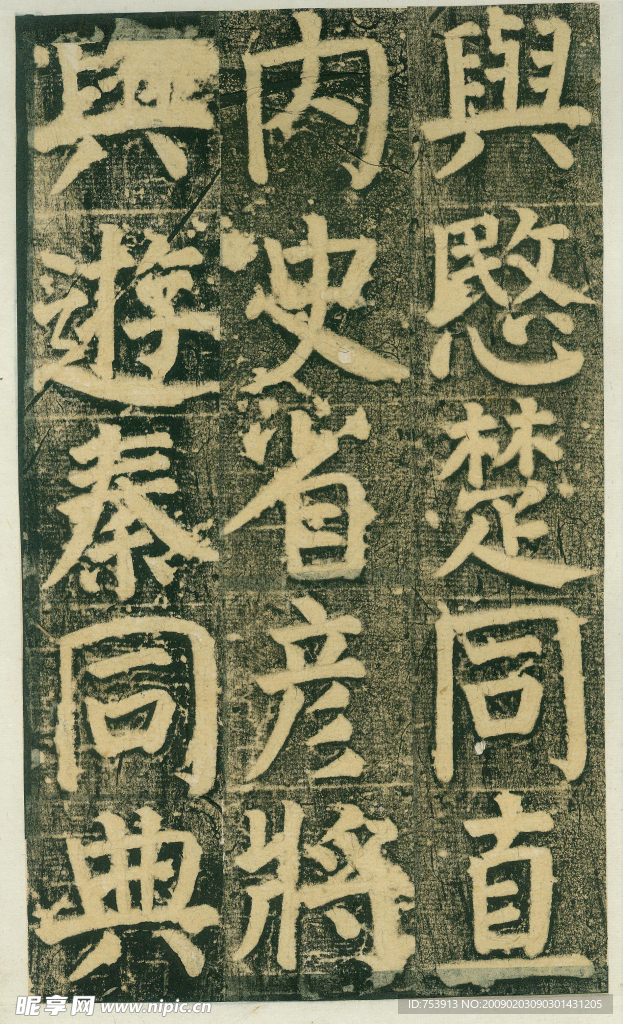 與愍楚同直
内史省彦將
與遊秦同典
昵享网 www.nipic.cn
ID:753913 NO:20090203090301431205